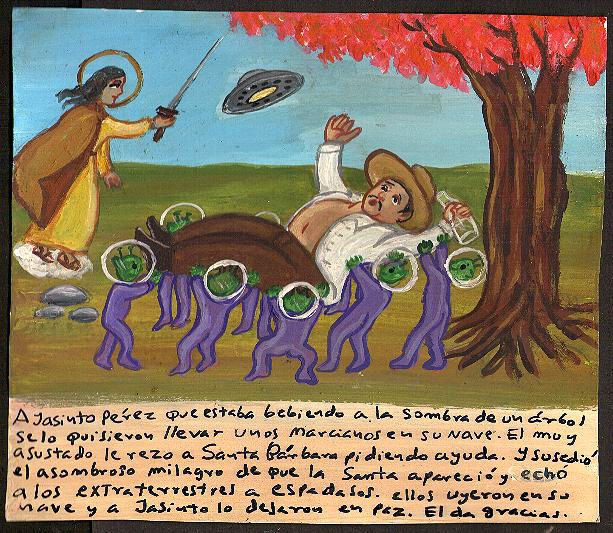 A Jasinto Pérez que estaba bebiendo a la sombra de un árbol
se lo quisieron llevar unos marcianos en su nave. El muy
asustado le rezo a Santa Bárbara pidiendo ayuda. Y susedió
el asombroso milagro de que la Santa apareció y echó
a los extraterrestres a espadasos. ellos uyeron en su
nave y a Jasinto lo dejaron en paz. El da gracias.